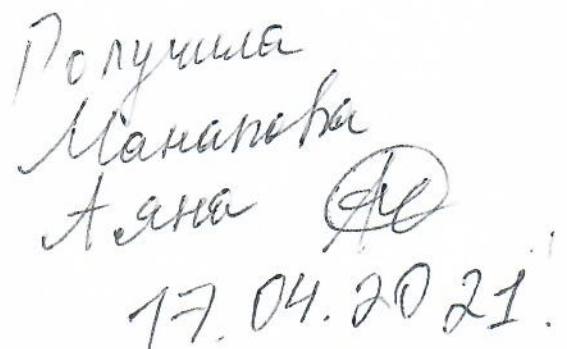 Получила
Манапова
Аяна
17.04.2021.